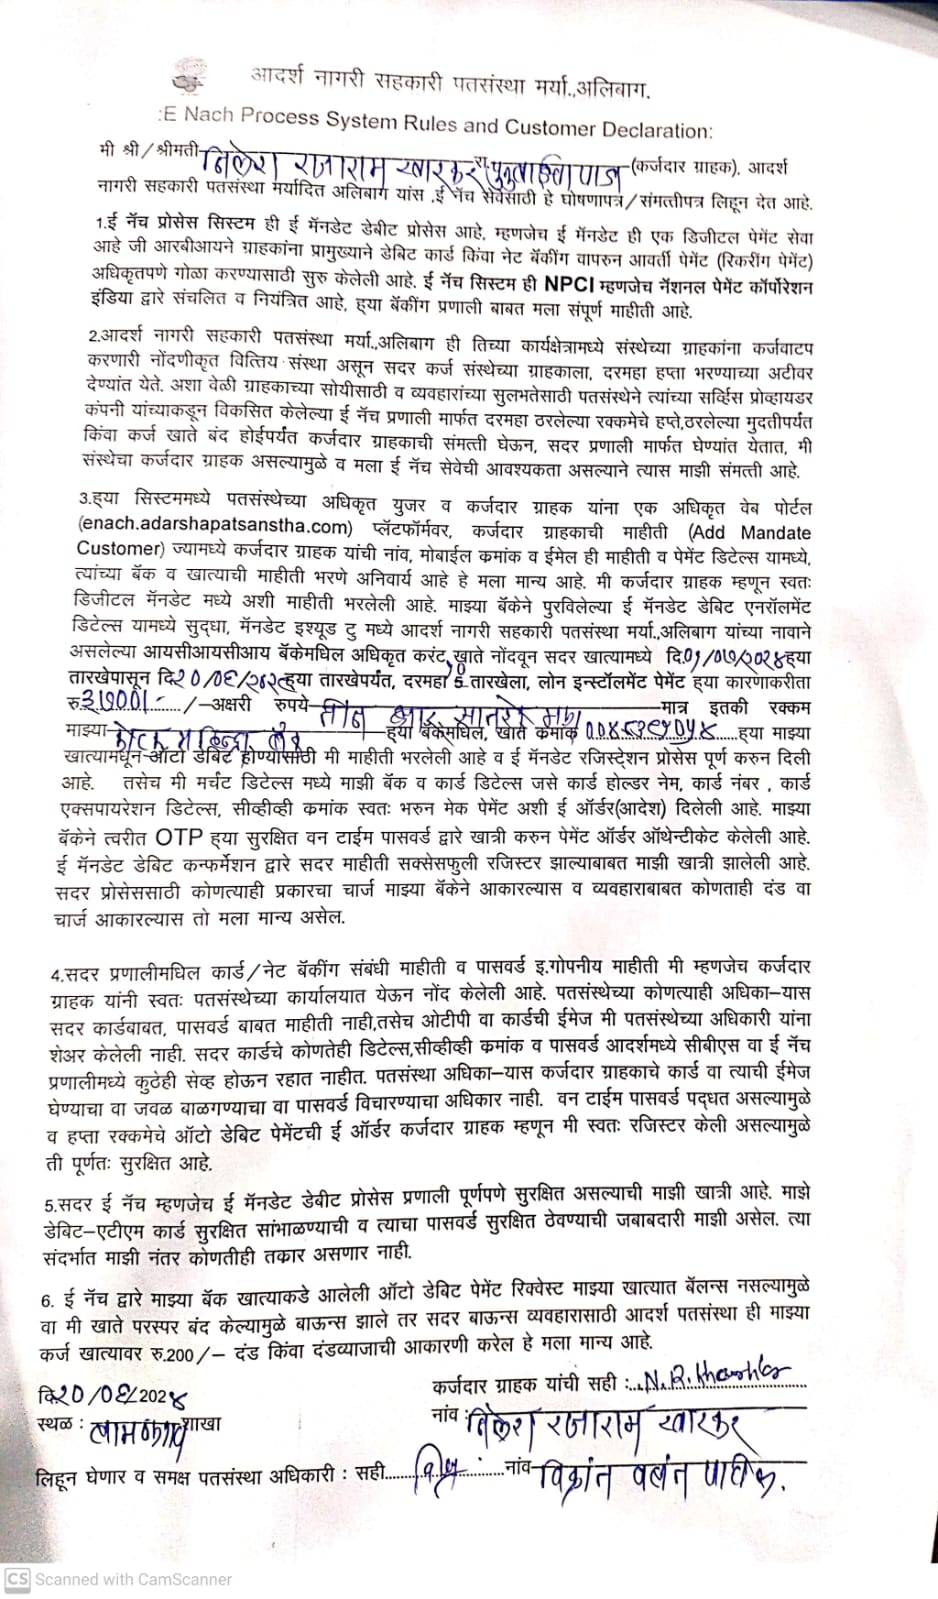 आदर्श नागरी सहकारी पतसंस्था मर्या.,अलिबाग.
:E Nach Process System Rules and Customer Declaration:
मी श्री/श्रीमती निलेश राजाराम खारकर रा. (कर्जदार ग्राहक), आदर्श
नागरी सहकारी पतसंस्था मर्यादित अलिबाग यांस ,ई नॅच सेवेसाठी हे घोषणापत्र/संमत्तीपत्र लिहून देत आहे.
1.ई नॅच प्रोसेस सिस्टम ही ई मॅनडेट डेबीट प्रोसेस आहे, म्हणजेच ई मॅनडेट ही एक डिजीटल पेमेंट सेवा
आहे जी आरबीआयने ग्राहकांना प्रामुख्याने डेबिट कार्ड किंवा नेट बॅकींग वापरुन आवर्ती पेमेंट (रिकरींग पेमेंट)
अधिकृतपणे गोळा करण्यासाठी सुरु केलेली आहे. ई नॅच सिस्टम ही NPCI म्हणजेच नॅशनल पेमेंट कॉर्पोरेशन
इंडिया द्वारे संचलित व नियंत्रित आहे, ह्या बॅकींग प्रणाली बाबत मला संपूर्ण माहीती आहे.
2.आदर्श नागरी सहकारी पतसंस्था मर्या.,अलिबाग ही तिच्या कार्यक्षेत्रामध्ये संस्थेच्या ग्राहकांना कर्जवाटप
करणारी नोंदणीकृत वित्तिय संस्था असून सदर कर्ज संस्थेच्या ग्राहकाला, दरमहा हप्ता भरण्याच्या अटीवर
देण्यांत येते. अशा वेळी ग्राहकाच्या सोयीसाठी व व्यवहारांच्या सुलभतेसाठी पतसंस्थेने त्यांच्या सर्व्हिस प्रोव्हायडर
कंपनी यांच्याकडून विकसित केलेल्या ई नॅच प्रणाली मार्फत दरमहा ठरलेल्या रक्कमेचे हप्ते,ठरलेल्या मुदतीपर्यंत
किंवा कर्ज खाते बंद होईपर्यंत कर्जदार ग्राहकाची संमत्ती घेऊन, सदर प्रणाली मार्फत घेण्यांत येतात, मी
संस्थेचा कर्जदार ग्राहक असल्यामुळे व मला ई नॅच सेवेची आवश्यकता असल्याने त्यास माझी संमत्ती आहे.
3.ह्या सिस्टममध्ये पतसंस्थेच्या अधिकृत युजर व कर्जदार ग्राहक यांना एक अधिकृत वेब पोर्टल
(enach.adarshapatsanstha.com) प्लॅटफॉर्मवर, कर्जदार ग्राहकाची माहीती (Add Mandate
Customer) ज्यामध्ये कर्जदार ग्राहक यांची नांव, मोबाईल कमांक व ईमेल ही माहीती व पेमेंट डिटेल्स यामध्ये,
त्यांच्या बॅक व खात्याची माहीती भरणे अनिवार्य आहे हे मला मान्य आहे. मी कर्जदार ग्राहक म्हणून स्वतः
डिजीटल मॅनडेट मध्ये अशी माहीती भरलेली आहे. माझ्या बॅकेने पुरविलेल्या ई मॅनडेट डेबिट एनरॉलमेंट
डिटेल्स यामध्ये सुद्धा, मॅनडेट इश्यूड टु मध्ये आदर्श नागरी सहकारी पतसंस्था मर्या.,अलिबाग यांच्या नावाने
असलेल्या आयसीआयसीआय बॅकेमधिल अधिकृत करंट खाते नोंदवून सदर खात्यामध्ये दि.०१/०७/२०२४ ह्या
तारखेपासून दि.२०/०६/२०२८ ह्या तारखेपर्यंत, दरमहा तारखेला, लोन इन्स्टॉलमेंट पेमेंट ह्या कारणाकरीता
रु.३,७००/-......./-अक्षरी रुपये तीन हजार सातशे मात्र मात्र इतकी रक्कम
माझ्या कोटक महिन्द्रा बँक ह्या बॅकेमधिल, खाते कमांक ......ह्या माझ्या
खात्यामधून ऑटो डेबिट होण्यासाठी मी माहीती भरलेली आहे व ई मॅनडेट रजिस्ट्रेशन प्रोसेस पूर्ण करुन दिली
आहे. तसेच मी मर्चंट डिटेल्स मध्ये माझी बॅक व कार्ड डिटेल्स जसे कार्ड होल्डर नेम, कार्ड नंबर , कार्ड
एक्सपायरेशन डिटेल्स, सीव्हीव्ही कमांक स्वतः भरुन मेक पेमेंट अशी ई ऑर्डर(आदेश) दिलेली आहे. माझ्या
बॅकेने त्वरीत OTP ह्या सुरक्षित वन टाईम पासवर्ड द्वारे खात्री करुन पेमेंट ऑर्डर ऑथेन्टीकेट केलेली आहे.
ई मॅनडेट डेबिट कन्फर्मेशन द्वारे सदर माहीती सक्सेसफुली रजिस्टर झाल्याबाबत माझी खात्री झालेली आहे.
सदर प्रोसेससाठी कोणत्याही प्रकारचा चार्ज माझ्या बॅकेने आकारल्यास व व्यवहाराबाबत कोणताही दंड वा
चार्ज आकारल्यास तो मला मान्य असेल.
4.सदर प्रणालीमधिल कार्ड/नेट बॅकींग संबंधी माहीती व पासवर्ड इ.गोपनीय माहीती मी म्हणजेच कर्जदार
ग्राहक यांनी स्वतः पतसंस्थेच्या कार्यालयात येऊन नोंद केलेली आहे. पतसंस्थेच्या कोणत्याही अधिका-यास
सदर कार्डबाबत, पासवर्ड बाबत माहीती नाही,तसेच ओटीपी वा कार्डची ईमेज मी पतसंस्थेच्या अधिकारी यांना
शेअर केलेली नाही. सदर कार्डचे कोणतेही डिटेल्स,सीव्हीव्ही कमांक व पासवर्ड आदर्शमध्ये सीबीएस वा ई नॅच
प्रणालीमध्ये कुठेही सेव्ह होऊन रहात नाहीत. पतसंस्था अधिका-यास कर्जदार ग्राहकाचे कार्ड वा त्याची ईमेज
घेण्याचा वा जवळ बाळगण्याचा वा पासवर्ड विचारण्याचा अधिकार नाही. वन टाईम पासवर्ड पद्धत असल्यामुळे
व हप्ता रक्कमेचे ऑटो डेबिट पेमेंटची ई ऑर्डर कर्जदार ग्राहक म्हणून मी स्वतः रजिस्टर केली असल्यामुळे
ती पूर्णतः सुरक्षित आहे.
5.सदर ई नॅच म्हणजेच ई मॅनडेट डेबीट प्रोसेस प्रणाली पूर्णपणे सुरक्षित असल्याची माझी खात्री आहे. माझे
डेबिट-एटीएम कार्ड सुरक्षित सांभाळण्याची व त्याचा पासवर्ड सुरक्षित ठेवण्याची जबाबदारी माझी असेल. त्या
संदर्भात माझी नंतर कोणतीही तकार असणार नाही.
6. ई नॅच द्वारे माझ्या बॅक खात्याकडे आलेली ऑटो डेबिट पेमेंट रिक्वेस्ट माझ्या खात्यात बॅलन्स नसल्यामुळे
वा मी खाते परस्पर बंद केल्यामुळे बाऊन्स झाले तर सदर बाऊन्स व्यवहारासाठी आदर्श पतसंस्था ही माझ्या
कर्ज खात्यावर रु.200/- दंड किंवा दंडव्याजाची आकारणी करेल हे मला मान्य आहे.
दि.२०/०६/202४
कर्जदार ग्राहक यांची सही :..N.R.Kharkar
स्थळ : शाखा
नांव : निलेश राजाराम खारकर
लिहून घेणार व समक्ष पतसंस्था अधिकारी : सही.............नांव विक्रांत वसंत पाटील.
CS Scanned with CamScanner